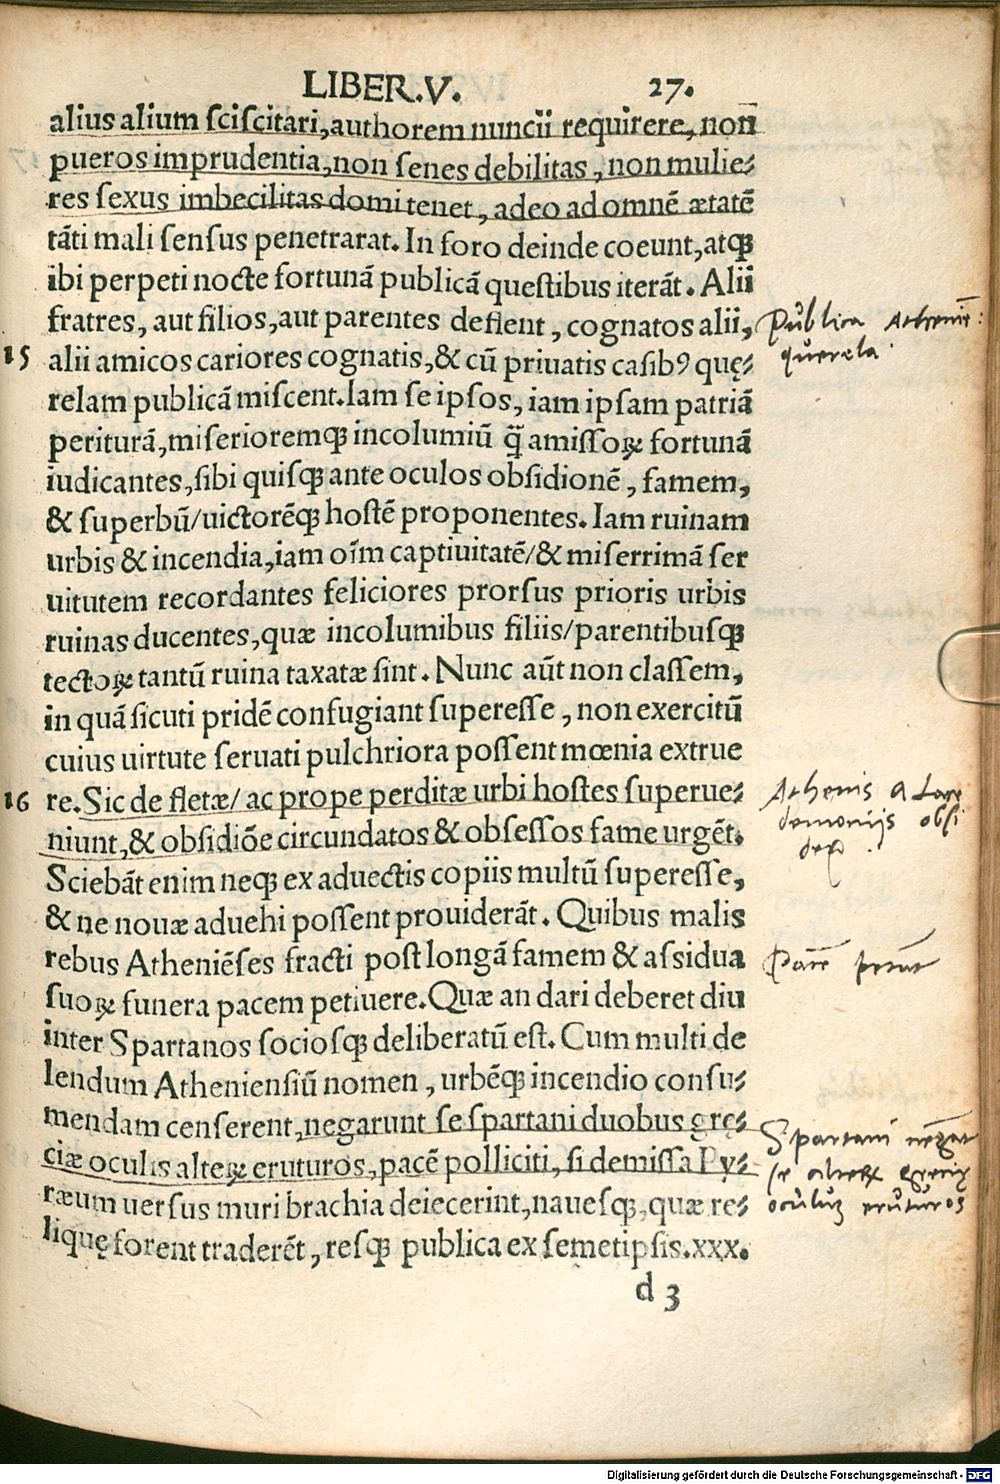 LIBER.V. 27.
alius alium sciscitari,authorem nuncii requirere, non
pueros imprudentia,non senes debilitas, non mulie-
res sexus imbecilitas domi tenet, adeo ad omnē ætatē
tāti mali sensus penetrarat. In foro deinde coeunt,atqꝫ
ibi perpeti nocte fortunā publicā questibus iterāt. Alii
fratres, aut filios,aut parentes deflent, cognatos alii,
Publica Athenie:
querela
15 alii amicos cariores cognatis,& cū priuatis casibꝰ quę-
relam publicā miscent.Iam se ipsos, iam ipsam patriā
periturā,miserioremqꝫ incolumiū q̄ȝ amissoꝝ fortunā
iudicantes,sibi quisqꝫ ante oculos obsidionē, famem,
& superbū/uictorēqꝫ hostē proponentes. Iam ruinam
urbis & incendia,iam oīm captiuitatē/& miserrimā ser
uitutem recordantes feliciores prorsus prioris urbis
ruinas ducentes,quæ incolumibus filiis/parentibusqꝫ
tectoꝝ tantū ruina taxatæ sint. Nunc aūt non classem,
in quā sicuti pridē confugiant superesse, non exercitū
cuius uirtute seruati pulchriora possent mœnia extrue
16 re.Sic de fletæ/ ac prope perditæ urbi hostes superue-
Athenis a Lace
demoniis obsi
niunt,& obsidiōe circundatos & obsessos fame urgēt.
Sciebāt enim neqꝫ ex aduectis copiis multū superesse,
& ne nouæ aduehi possent prouiderāt. Quibus malis
rebus Atheniēses fracti post longā famem & assidua
Pacē petunt
suoꝝ funera pacem petiuere.Quæ an dari deberet diu
inter Spartanos sociosqꝫ deliberatū est. Cum multi de
lendum Atheniensiū nomen, urbēqꝫ incendio consu-
mendam censerent,negarunt se spartani duobus grę-
Spartani negāt
se alteꝝ grecię
oculum eruturos
ciæ oculis alteꝝ eruturos,pacē polliciti, si demissa Py-
ræum uersus muri brachia deiecerint,nauesqꝫ,quæ re-
liquę forent traderēt, resqꝫ publica ex semetipsis.xxx.
d 3
Digitalisierung gefördert durch die Deutsche Forschungsgemeinschaft - DFG